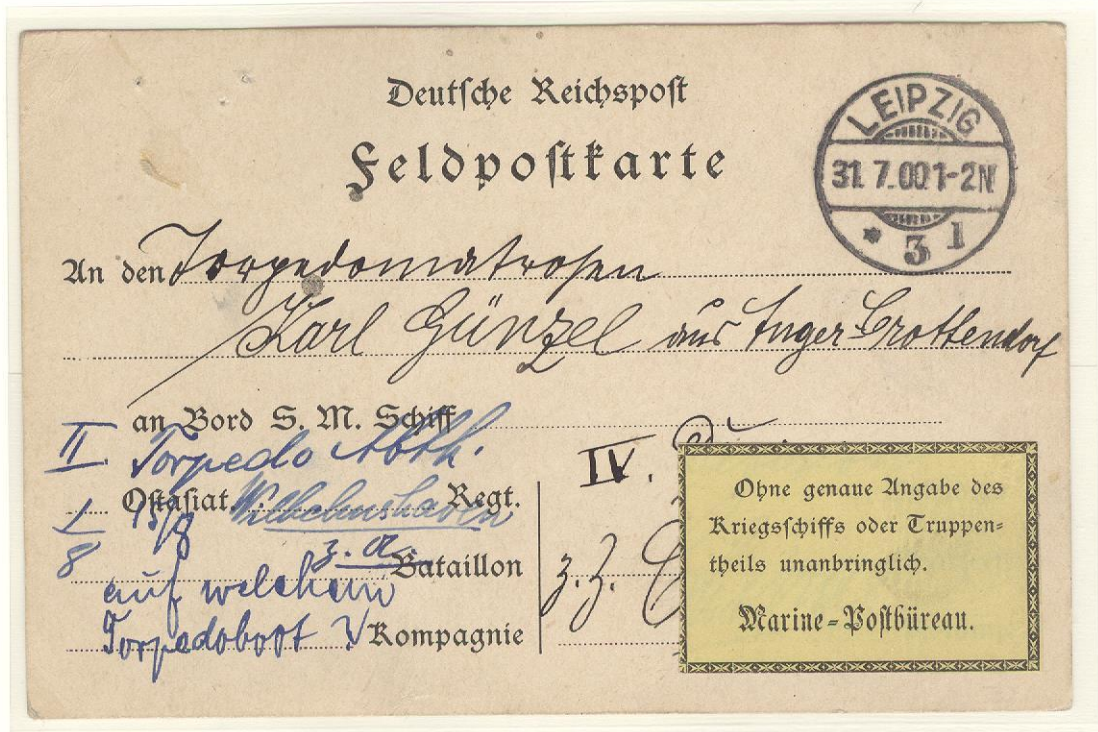 Deutsche Reichspost
Feldpostkarte
LEIPZIG
31.7.00 1-2N
* 3 1
An den Torpedomatrosen
Karl Günzel aus Anger-Crottendorf
an Bord S. M. Schiff
II Torpedo Abth.
Ostasiat. Wilhelmshaven Regt.
1/8 15/8
z. a. Bataillon
auf welchem
Torpedoboot ? Kompagnie
IV.
z. Z.
Ohne genaue Angabe des
Kriegsschiffs oder Truppen-
theils unanbringlich.
Marine-Postbüreau.